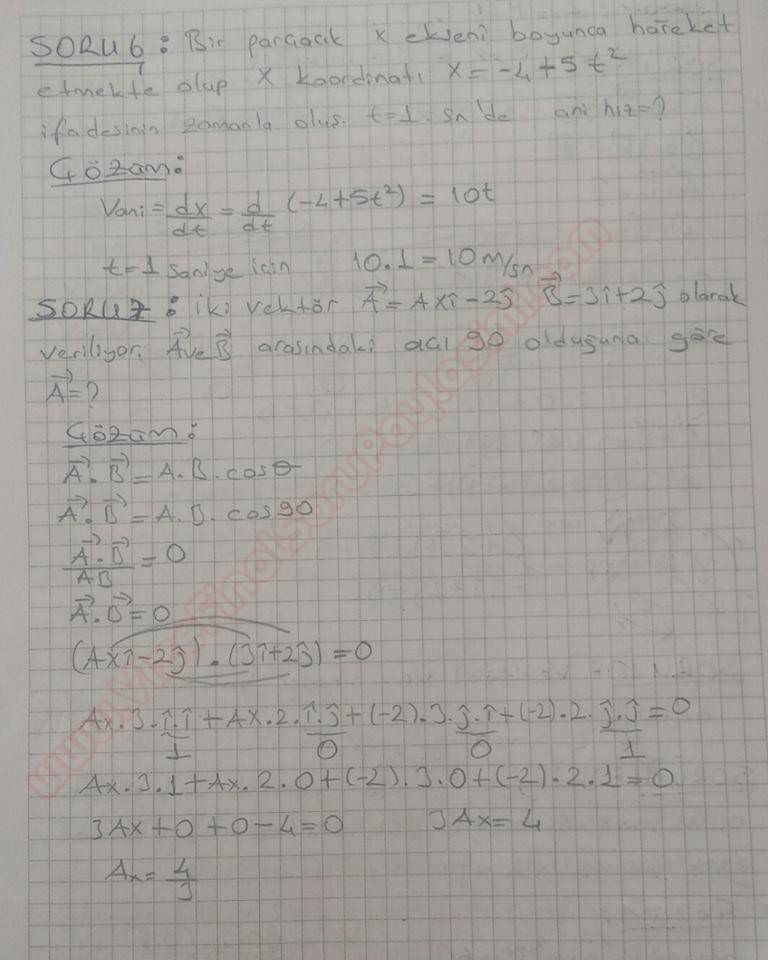 SORU 6: Bir parçacık x ekseni boyunca hareket
etmekte olup x koordinatı x = -4 + 5t²
ifadesinin zamanla oluş. t=1 sn'de ani hız=?
Çözüm:
Vani = dx/dt = d/dt (-4+5t²) = 10t
t=1 saniye için 10.1 = 10 m/sn
SORU 7: iki vektör A⃗ = Axî - 2ĵ B⃗ = 3î + 2ĵ olarak
veriliyor. A⃗ ve B⃗ arasındaki açı 90 olduğuna göre
A⃗ = ?
Çözüm:
A⃗.B⃗ = A.B.cosθ
A⃗.B⃗ = A.B.cos90
A⃗.B⃗/AB = 0
A⃗.B⃗ = 0
(Axî-2ĵ).(3î+2ĵ) = 0
Ax.3.î.î + Ax.2.î.ĵ + (-2).3.ĵ.î + (-2).2.ĵ.ĵ = 0
1 0 0 1
Ax.3.1 + Ax.2.0 + (-2).3.0 + (-2).2.1 = 0
3Ax + 0 + 0 - 4 = 0 3Ax = 4
Ax = 4/3